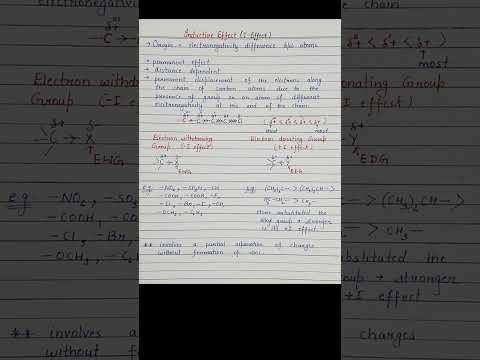 Inductive Effect (I-Effect)
→ Origin = electronegativity difference b/w atoms
→ permanent effect
→ distance dependent
→ permanent displacement of the electrons along
the chain of carbon atoms due to the
presence of group or an atom of different
electronegativity at the end of the chain.
Electron withdrawing
Group (-I effect)
EWG
Electron donating Group
(+I effect)
EDG
e.g. -NO₂, -SO₃H, -CN
-COOH, -COOR, -F,
-Cl, -Br, -I, -OH
-OCH₃, -C₆H₅
e.g. (CH₃)₃C- > (CH₃)₂CH-
> CH₃-CH₂- > CH₃-
More substituted the
alkyl group → stronger
is its +I effect.
** involves a partial separation of charges
without formation of ions.